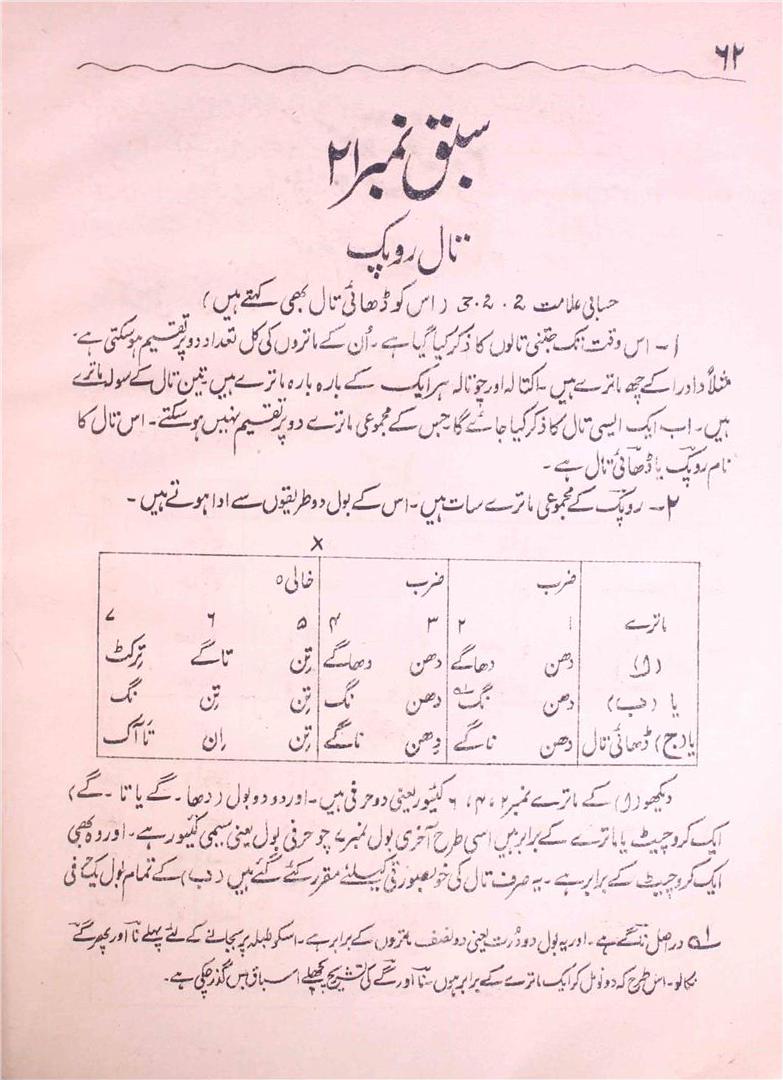 ۶۲
سبق نمبر ۲۱
تال روپک
حسابی علامت 2 . 2 . 3 ( اس کو ڈھائی تال بھی کہتے ہیں )
۱- اس وقت تک جتنی تالوں کا ذکر کیا گیا ہے ۔ اُن کے ماتروں کی کل تعداد دو پر تقسیم ہو سکتی ہے ۔
مثلاً دادرا کے چھ ماترے ہیں ۔ اکتالہ اور چوتالہ ہر ایک کے بارہ بارہ ماترے ہیں تین تال کے سولہ ماترے
ہیں ۔ اب ایک ایسی تال کا ذکر کیا جائے گا جس کے مجموعی ماترے دو پر تقسیم نہیں ہو سکتے ۔ اس تال کا
نام روپک یا ڈھائی تال ہے ۔
۲- روپک کے مجموعی ماترے سات ہیں ۔ اس کے بول دو طریقوں سے ادا ہوتے ہیں ۔
X
ضرب ضرب خالی ०
ماترے ۱ ۲ ۳ ۴ ۵ ۶ ۷
(ا) دھن دھاگے دھن دھاگے تِن تاگے تِرکٹ
یا (ب) دھن نگ ۱ دھن نگ تِن تِن نگ
یا (ج) ڈھائی تال دھن ناگے دِھن ناگے تِن اِن تَا آک
دیکھو (ا) کے ماترے نمبر ۲ ، ۴ ، ۶ کئیور یعنی دو حرفی ہیں ۔ اور دو دو بول ( دھا ۔ گے یا تا ۔ گے )
ایک کروچیٹ یا ماترے کے برابر ہیں اسی طرح آخری بول نمبر ۷ چو حرفی بول یعنی سیمی کئیور ہے ۔ اور وہ بھی
ایک کروچیٹ کے برابر ہے ۔ یہ صرف تال کی خوبصورتی کیلئے مقرر کئے گئے ہیں (ب) کے تمام بول یک حرفی
۱ دراصل نَگے ہے ۔ اور یہ بول دو دُرت یعنی دو نصف ماتروں کے برابر ہے ۔ اسکو طبلہ پر بجانے کے لئے پہلے نَا اور پھر گے
نکالو ۔ اس طرح کہ دونوں مل کر ایک ماترے کے برابر ہوں ۔ نَا اور گے کی تشریح پچھلے اسباق میں گذر چکی ہے ۔